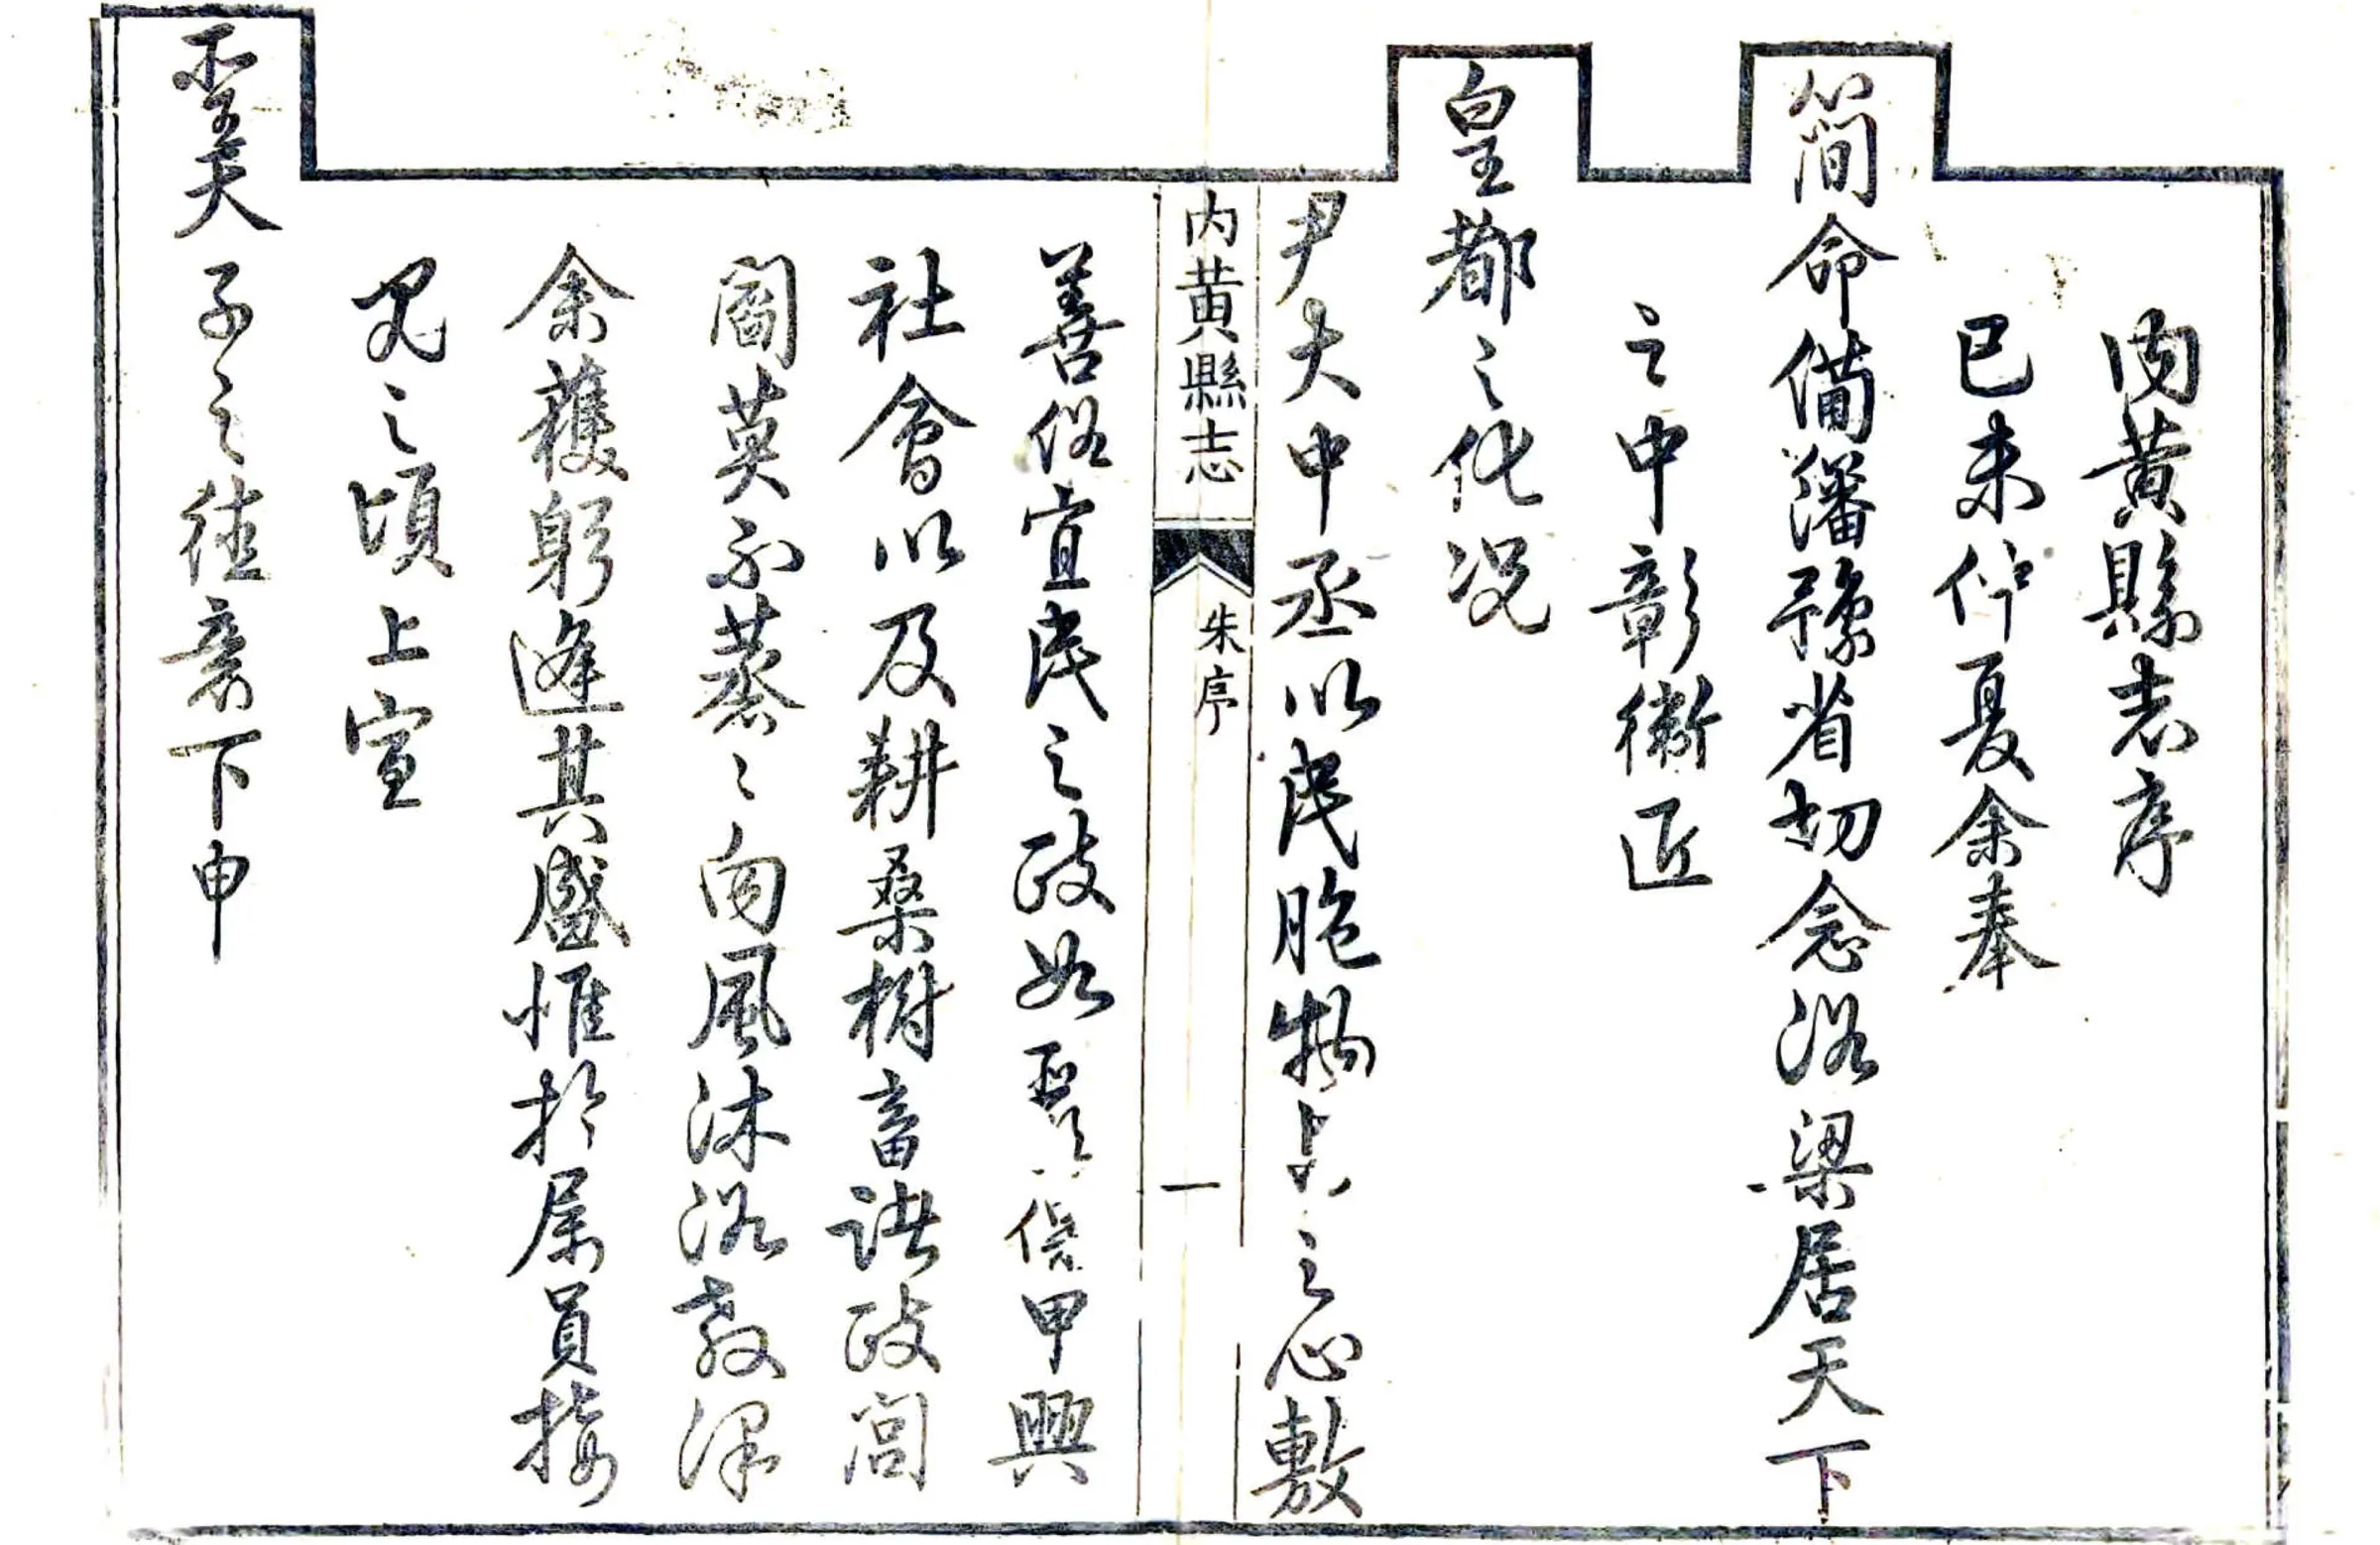 內黄縣志序
已未仲夏余奉
簡命備藩豫省切念洛梁居天下
之中彰衛匠
皇都之化況
尹大中丞以民胞物與之心敷
內黄縣志
朱序
一
善俗宜民之政如 保甲興
社會以及耕桑樹畜諸政閭
閻莫不蒸〻向風沐浴教澤
余獲躬逢其盛惟於屬員接
見之頃上宣
聖天子之德意下申